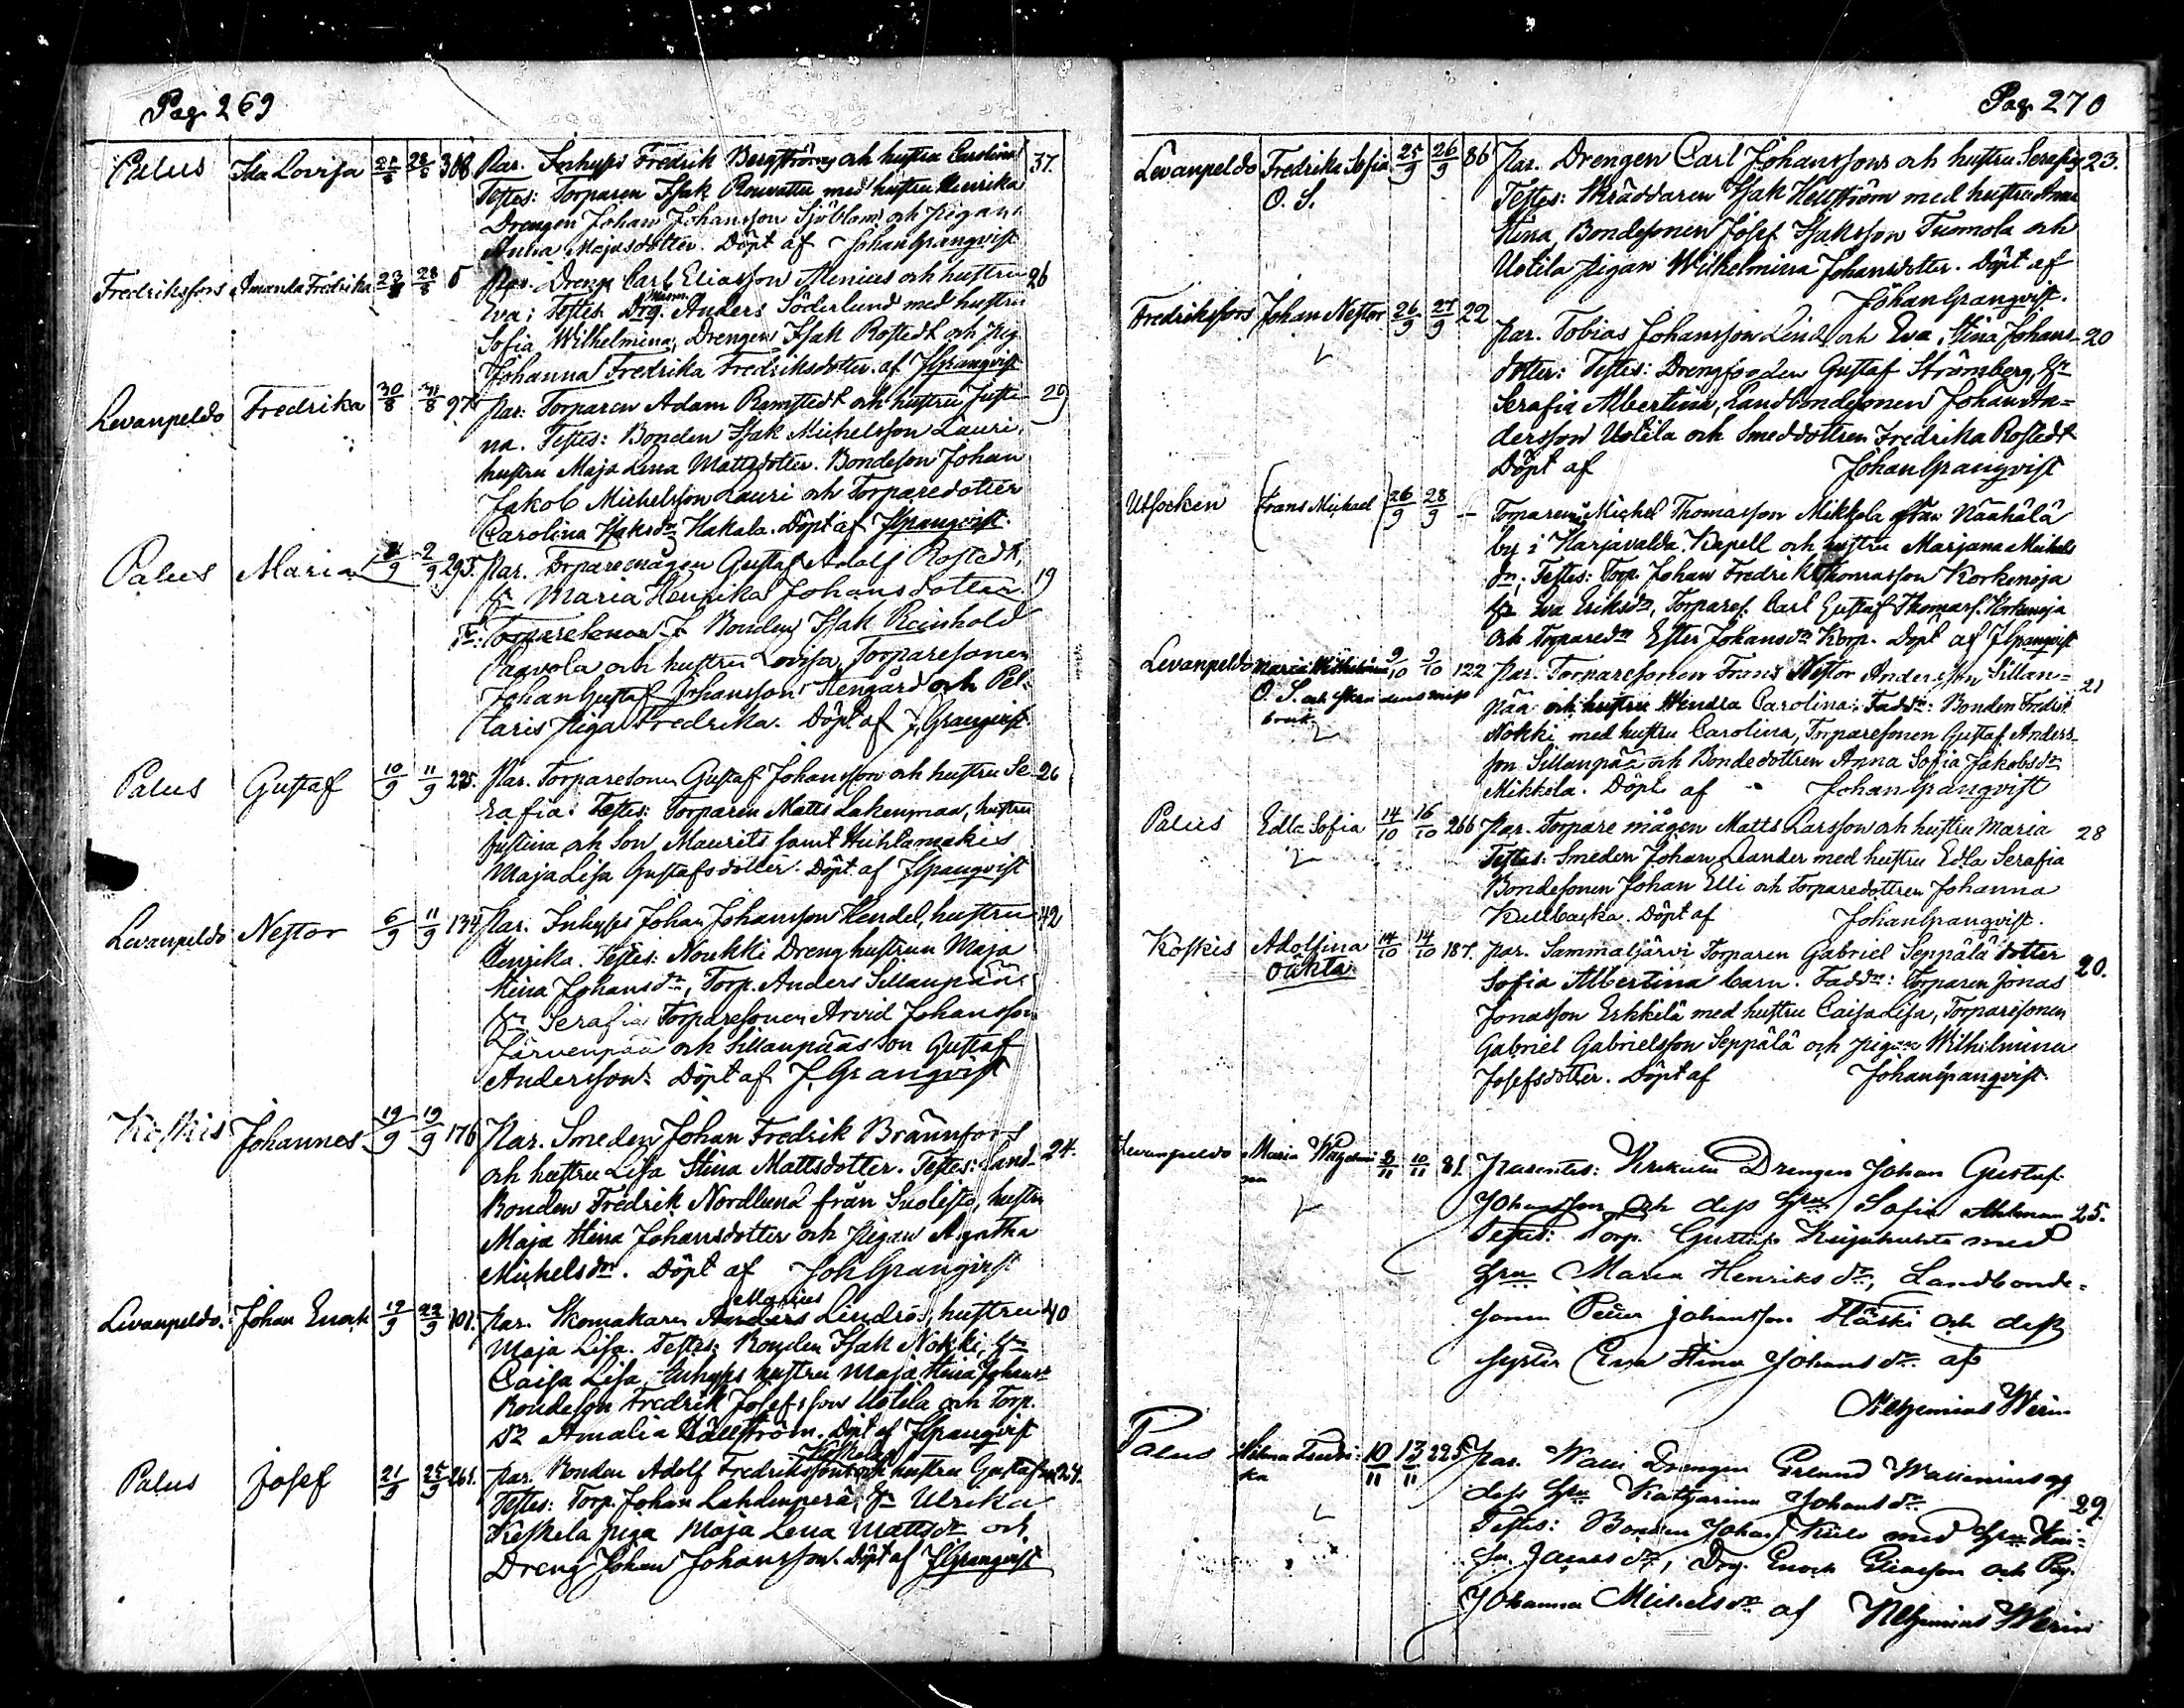 Pag. 269
Palus Ida Lovisa 27/8 28/8 368 Par. Inhyses Fredrik Bergström och hustru Carolina 37.
Testes: Torparen Isak Rouvattu med hustru Henrika
Drengen Johan Johansson Sjöblom och pigan
Anna Majasdotter. Döpt af Johan Granqvist
Fredriksfors Amanda Fredrika 23/8 28/8 5 Par. Dreng Carl Eliasson Menius och hustru 26
Eva; Testes Drg. Anders Söderlund med hustru
Sofia Wilhelmina, Drengen Isak Rostedt och pig
Johanna Fredrika Fredriksdotter. af JGranqvist
Levanpeldo Fredrika 30/8 31/8 97 Par: Torparen Adam Ramstedt och hustru Justi- 29
na. Testes: Bonden Isak Michelsson Lauri,
hustru Maja Lena Mattsdotter. Bondeson Johan
Jakob Michelsson Lauri och Torparedotter
Carolina Isaksdr Hakala. Döpt af JGranqvist.
Palus Maria 1/9 2/9 295. Par. Torparemågen Gustaf Adolf Rostedt,
hu Maria Henrika Johansdotter 19
Bonden Isak Reinhold
Paavola och hustru Lovisa, Torparesonen
Johan Gustaf Johansson Stengård och Pel-
taris piga Fredrika. Döpt af J. Granqvist
Palus Gustaf 10/9 11/9 225. Par. Torpareson Gustaf Johansson och hustru Se- 26
rafia: Testes: Torparen Matts Lakenmaa, hustru
Justina och Son Maurits samt Huhtamakis
Maja Lisa Gustafsdotter. Döpt af JGranqvist
Levanpeldo Nestor 6/9 11/9 134 Par. Inhyses Johan Johansson Hendel, hustru 42
Henrika. Testes: Noukki Dreng hustrun Maja
Stina Johansdr, Torp. Anders Sillanpää
hu Serafia Torparesonen Arvid Johansson
Järvenpää och Sillanpääs Son Gustaf
Andersson. Döpt af J. Granqvist
Koskis Johannes 19/9 19/9 176 Par. Smeden Johan Fredrik Brännfors
och hustru Lisa Stina Mattsdotter. Testes: Land- 24.
Bonden Fredrik Nordlund från Suolisto, hustru
Maja Stina Johansdotter och pigan Agatha
Michelsdr. Döpt af Joh Granqvist
Levanpeldo. Johan Enoch 19/9 22/9 101. Par. Skomakaren Marius Lindroos, hustru 40
Maja Lisa. Testes: Bonden Isak Nokki, hu
Caisa Lisa, Inhyses hustru Maja Stina Johansdr
Bondeson Fredrik Josefsson Uotila och Torp.
dr Amalia Hällström. Döpt af JGranqvist
Palus Josef 21/9 25/9 261. Par. Bonden Adolf Fredriksson Koskela och hustru Gustafva 24.
Testes: Torp. Johan Lahdenperä, hu Ulrika
Keskela piga Maja Lena Mattsdr och
Dreng Johan Johansson. Döpt af JGranqvist
Pag. 270
Levanpeldo Fredrika Sofia 25/9 26/9 86 Par. Drengen Carl Johansson och hustru Serafia 23.
O. S. Testes: Skräddaren Isak Hellström med hustru Anna
Stina, Bondesonen Josef Isaksson Tuomola och
Uotila pigan Wilhelmina Johansdotter. Döpt af
Johan Granqvist.
Fredriksfors Johan Nestor 26/9 27/9 22 Par. Tobias Johansson Lind och Eva Stina Johans- 20
dotter: Testes: Drengsonden Gustaf Strömberg, hu
Serafia Albertina, Landbondesonen Johan An-
dersson Uotila och Smeddottren Fredrika Rostedt
Döpt af Johan Granqvist
Utsocken Frans Michael 26/9 28/9 — Torparen Michel Thomasson Mikkola från Näähälä
by i Harjavalda Kapell och hustru Marjana Michels
dr; Testes: Torp. Johan Fredrik Thomasson Korkeoja
hu Eva Eriksdr, Torpares. Carl Gustaf Thomass. Korkeoja
och Torparedr Ester Johansdr Korp. Döpt af JGranqvist
Levanpeldo Maria Wilhelmina 9/10 9/10 122 Par. Torparesonen Frans Nestor Andersson Sillan- 21
O. S. pää och hustru Hendla Carolina. Faddr: Bonden Fredrik
Nokki med hustru Carolina, Torparesonen Gustaf Anders-
son Sillanpää och Bondedottren Anna Sofia Jakobsdr
Mikkola. Döpt af Johan Granqvist
Palus Edla Sofia 14/10 16/10 266 Par. Torpare mågen Matts Larsson och hustru Maria 28
Testes: Smeden Johan Leander med hustru Edla Serafia
Bondesonen Johan Elli och Torparedottren Johanna
Kullbacka. Döpt af Johan Granqvist.
Koskis Adolfina 14/10 14/10 187. Par. Sammaljärvi Torparen Gabriel Seppälä dotter 20.
oäkta Sofia Albertina barn. Faddr: Torparen Jonas
Jonasson Erkkilä med hustru Caisa Lisa, Torparesonen
Gabriel Gabrielsson Seppälä och pigan Wilhelmina
Josefsdotter. Döpt af Johan Granqvist.
Levanpeldo Maria Wilhelmi 8/11 10/11 81. Parentes: Drengen Johan Gustaf
na Johansson och dess hru Sofia Ahlman 25.
Testes: Torp. Gustaf med
hru Maria Henriksdr, Landbonde-
sonen Petter Johansson och dess
syster Eva Stina Johansdr af
Nehemias Werin
Palus Wilma Fredri- 10/11 13/11 225 Par. Drengen Erland Wallenius och
ka dess hru Katharina Johansdr 29.
Testes: Bonden Johan med hru
Jaakosdr, Drg. Enoch Eliasson och Pig.
Johanna Michelsdr af Nehemias Werin